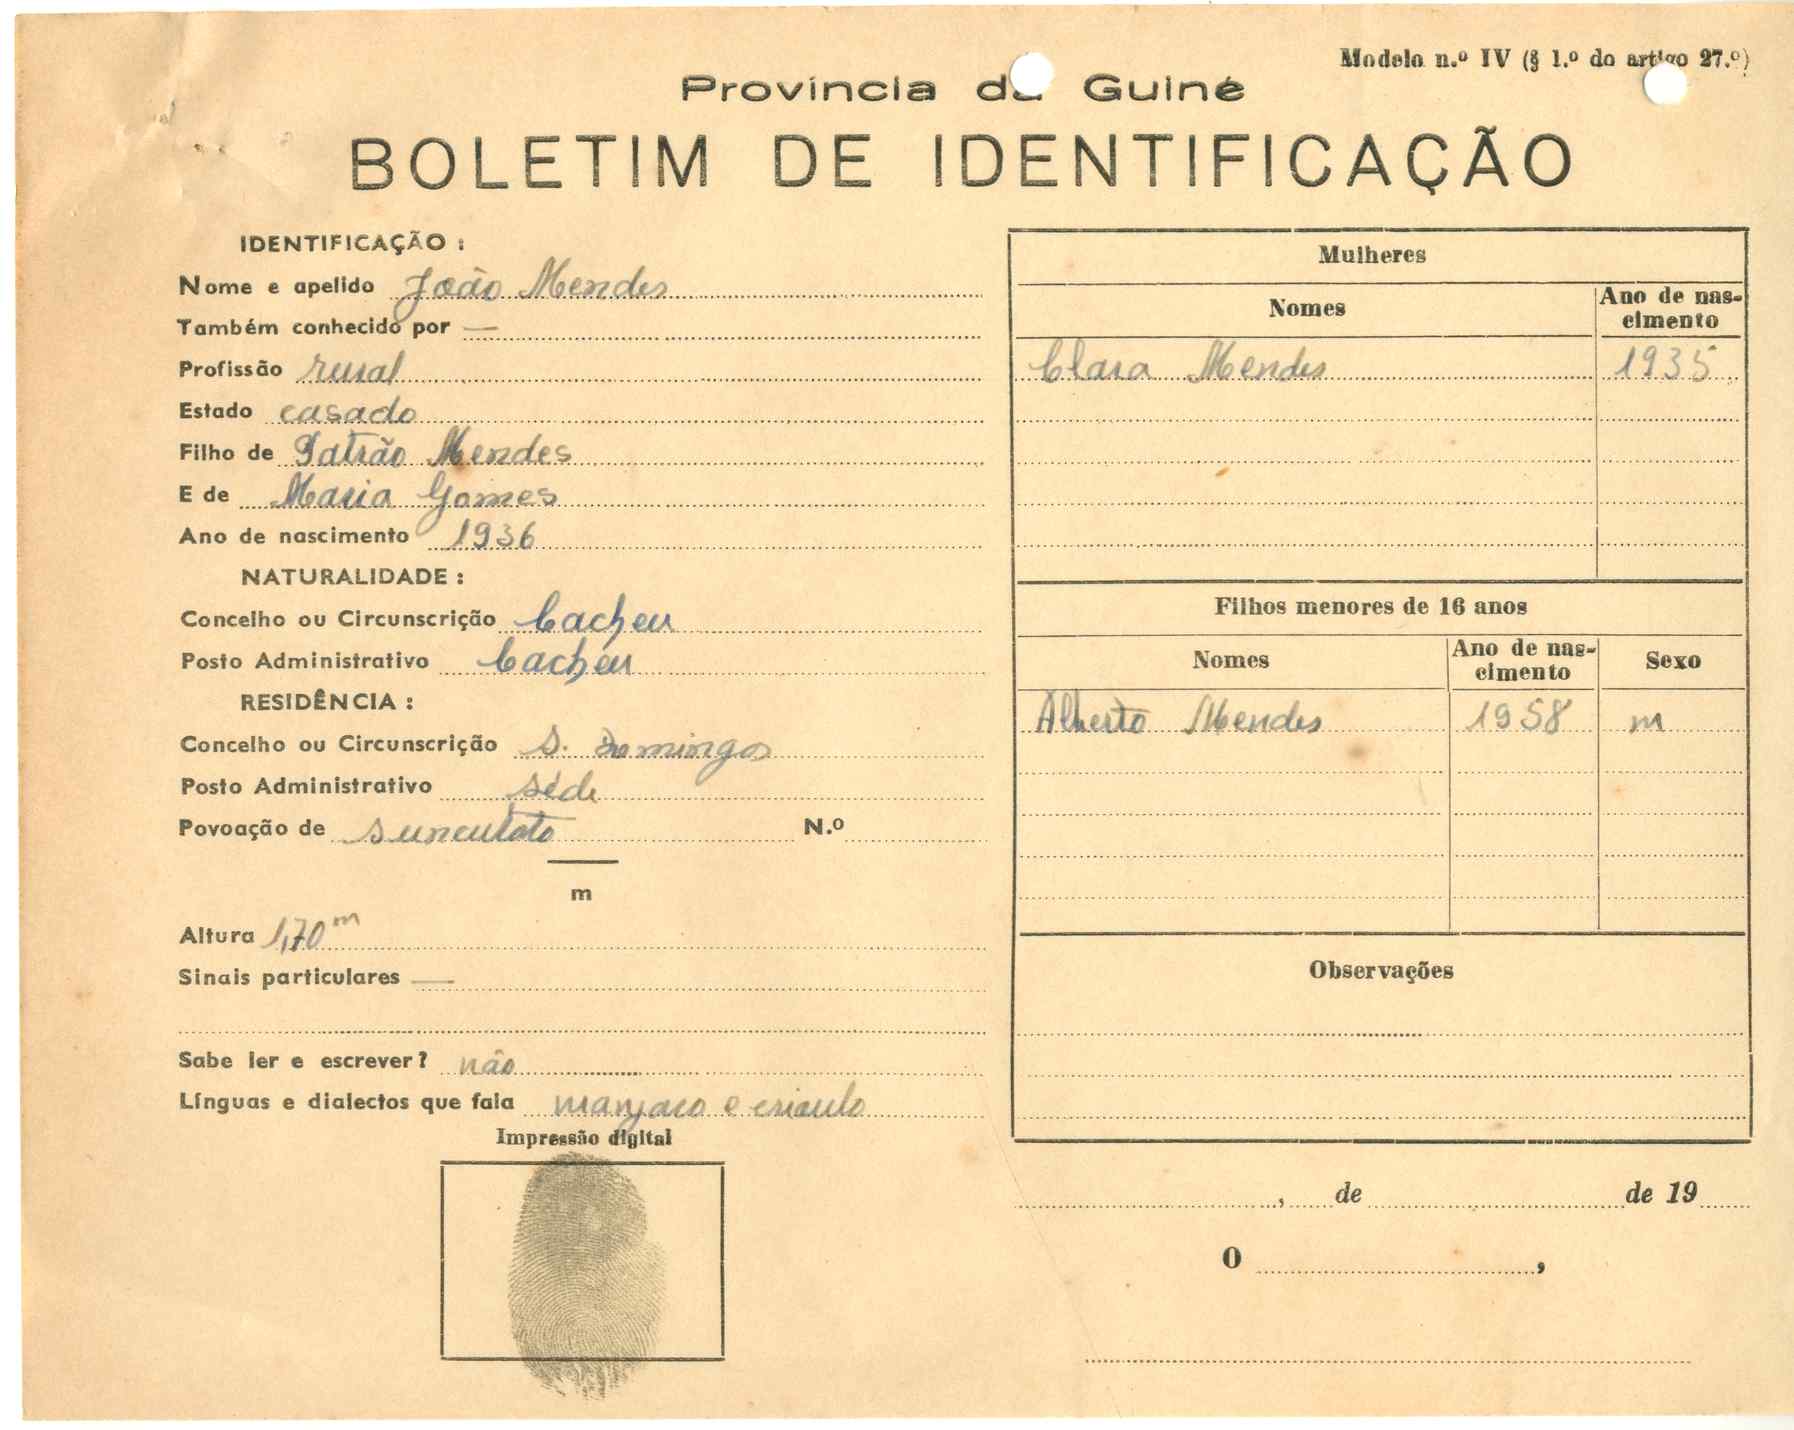 Modelo n.º IV (§ 1.º do artigo 27.º)
Província da Guiné
BOLETIM DE IDENTIFICAÇÃO
IDENTIFICAÇÃO :
Nome e apelido João Mendes
Também conhecido por —
Profissão rural
Estado casado
Filho de Patrão Mendes
E de Maria Gomes
Ano de nascimento 1936
NATURALIDADE :
Concelho ou Circunscrição Cacheu
Posto Administrativo Cacheu
RESIDÊNCIA :
Concelho ou Circunscrição S. Domingos
Posto Administrativo séde
Povoação de N.º
m
Altura 1,70 m
Sinais particulares —
Sabe ler e escrever? não
Línguas e dialectos que fala manjaco e crioulo
Impressão digital
Mulheres
Nomes Ano de nas-
cimento
Clara Mendes 1935
Filhos menores de 16 anos
Nomes Ano de nas-
cimento Sexo
Alberto Mendes 1958 m
Observações
, de de 19
O ,